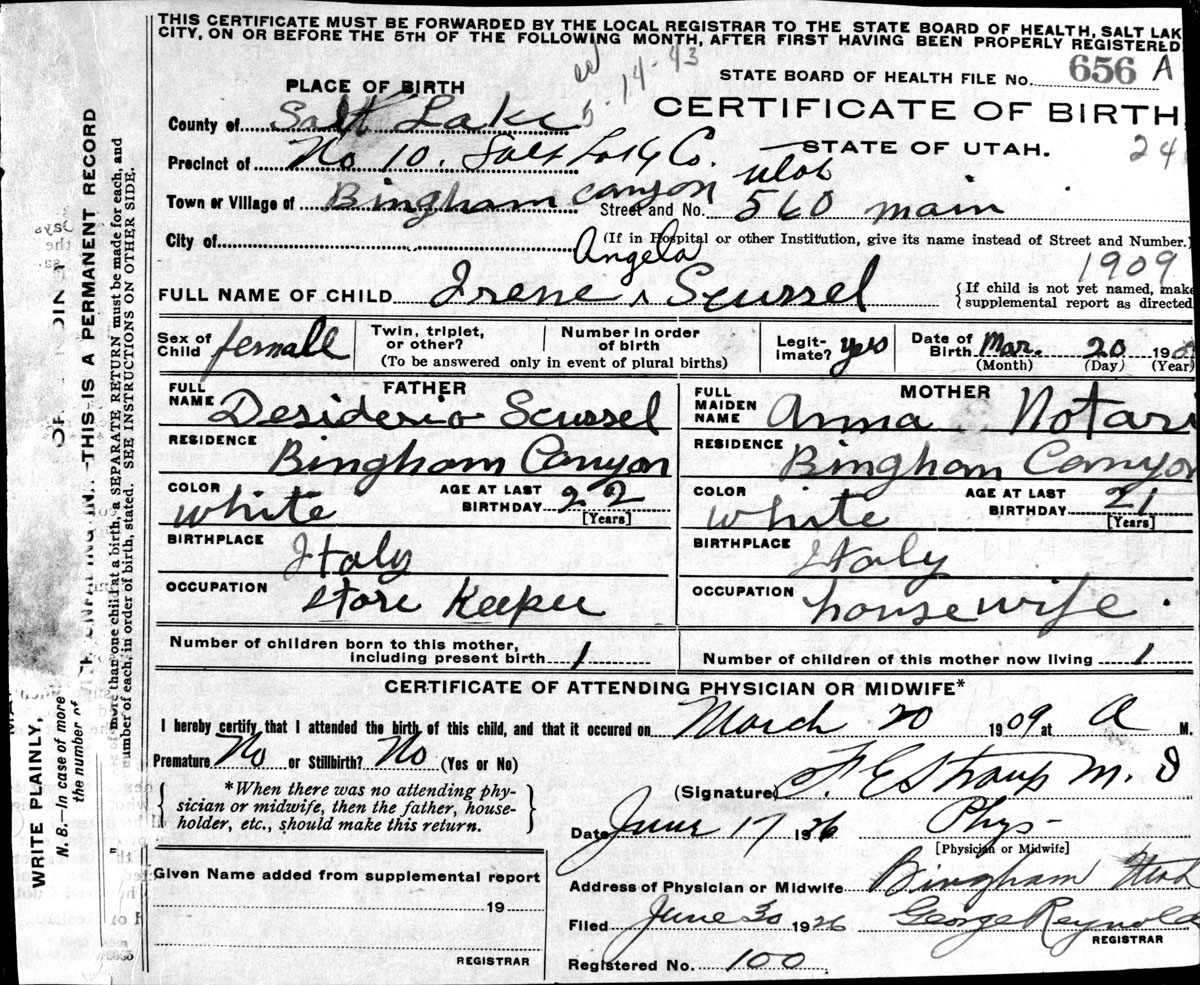 THIS CERTIFICATE MUST BE FORWARDED BY THE LOCAL REGISTRAR TO THE STATE BOARD OF HEALTH, SALT LAK
CITY, ON OR BEFORE THE 5TH OF THE FOLLOWING MONTH, AFTER FIRST HAVING BEEN PROPERLY REGISTERED
5-14-43
STATE BOARD OF HEALTH FILE No. 656 A
PLACE OF BIRTH
CERTIFICATE OF BIRTH
County of Salt Lake
STATE OF UTAH.
24
Precinct of No 10. Salt Lake Co. Utah
Town or Village of Bingham Canyon Street and No. 560 main
City of
(If in Hospital or other Institution, give its name instead of Street and Number.)
1909
FULL NAME OF CHILD Irene Angela Scussel
{If child is not yet named, make
supplemental report as directed
Sex of Child female
Twin, triplet, or other?
Number in order of birth
(To be answered only in event of plural births)
Legitimate? yes
Date of Birth Mar. 20 190
(Month) (Day) (Year)
FATHER
FULL NAME Desiderio Scussel
RESIDENCE Bingham Canyon
COLOR white
AGE AT LAST BIRTHDAY 22
[Years]
BIRTHPLACE Italy
OCCUPATION Store Keeper
MOTHER
FULL MAIDEN NAME Anna Notari
RESIDENCE Bingham Canyon
COLOR white
AGE AT LAST BIRTHDAY 21
[Years]
BIRTHPLACE Italy
OCCUPATION housewife.
Number of children born to this mother, including present birth 1
Number of children of this mother now living 1
CERTIFICATE OF ATTENDING PHYSICIAN OR MIDWIFE*
I hereby certify that I attended the birth of this child, and that it occured on March 20 1909 at A M.
Premature No or Stillbirth? No (Yes or No)
{*When there was no attending phy-
sician or midwife, then the father, house-
holder, etc., should make this return.}
(Signature) F. E Straup M. D
Date June 17 1926
Phys-
[Physician or Midwife]
Address of Physician or Midwife Bingham Utah
Filed June 30 1926 George Reynolds
REGISTRAR
Registered No. 100
Given Name added from supplemental report
19
REGISTRAR
WRITE PLAINLY,
THIS IS A PERMANENT RECORD
N. B.—In case of more than one child at a birth, a SEPARATE RETURN must be made for each, and
the number of each, in order of birth, stated. SEE INSTRUCTIONS ON OTHER SIDE.